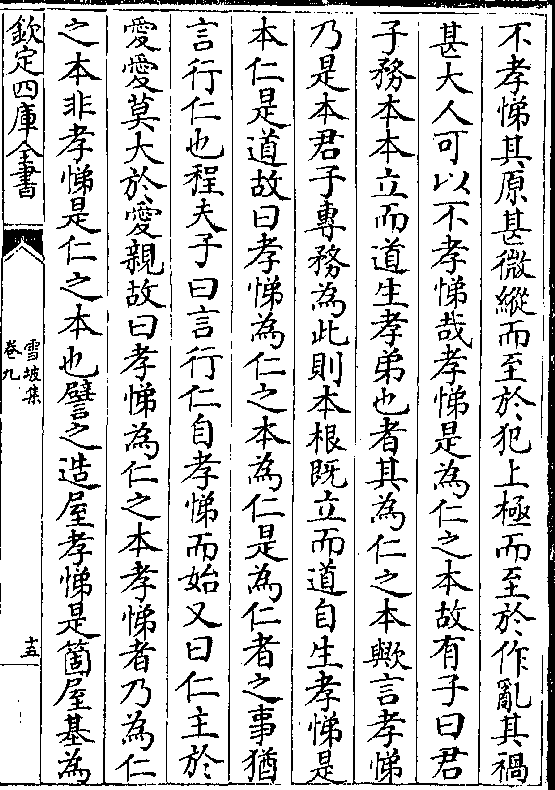 不孝悌其原甚微縱而至於犯上極而至於作亂其禍
甚大人可以不孝悌哉孝悌是為仁之本故有子曰君
子務本本立而道生孝弟也者其為仁之本歟言孝悌
乃是本君子專務為此則本根既立而道自生孝悌是
本仁是道故曰孝悌為仁之本為仁是為仁者之事猶
言行仁也程夫子曰言行仁自孝悌而始又曰仁主於
愛愛莫大於愛親故曰孝悌為仁之本孝悌者乃為仁
之本非孝悌是仁之本也譬之造屋孝悌是箇屋基為
欽定四庫全書
雪坡集
卷九
十五